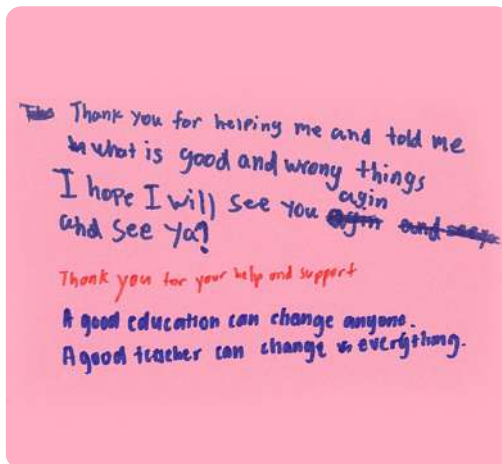 Thank you for helping me and told me
what is good and wrong things
I hope I will see you agin
and see ya?
Thank you for your help and support
A good education can change anyone.
A good teacher can change everything.